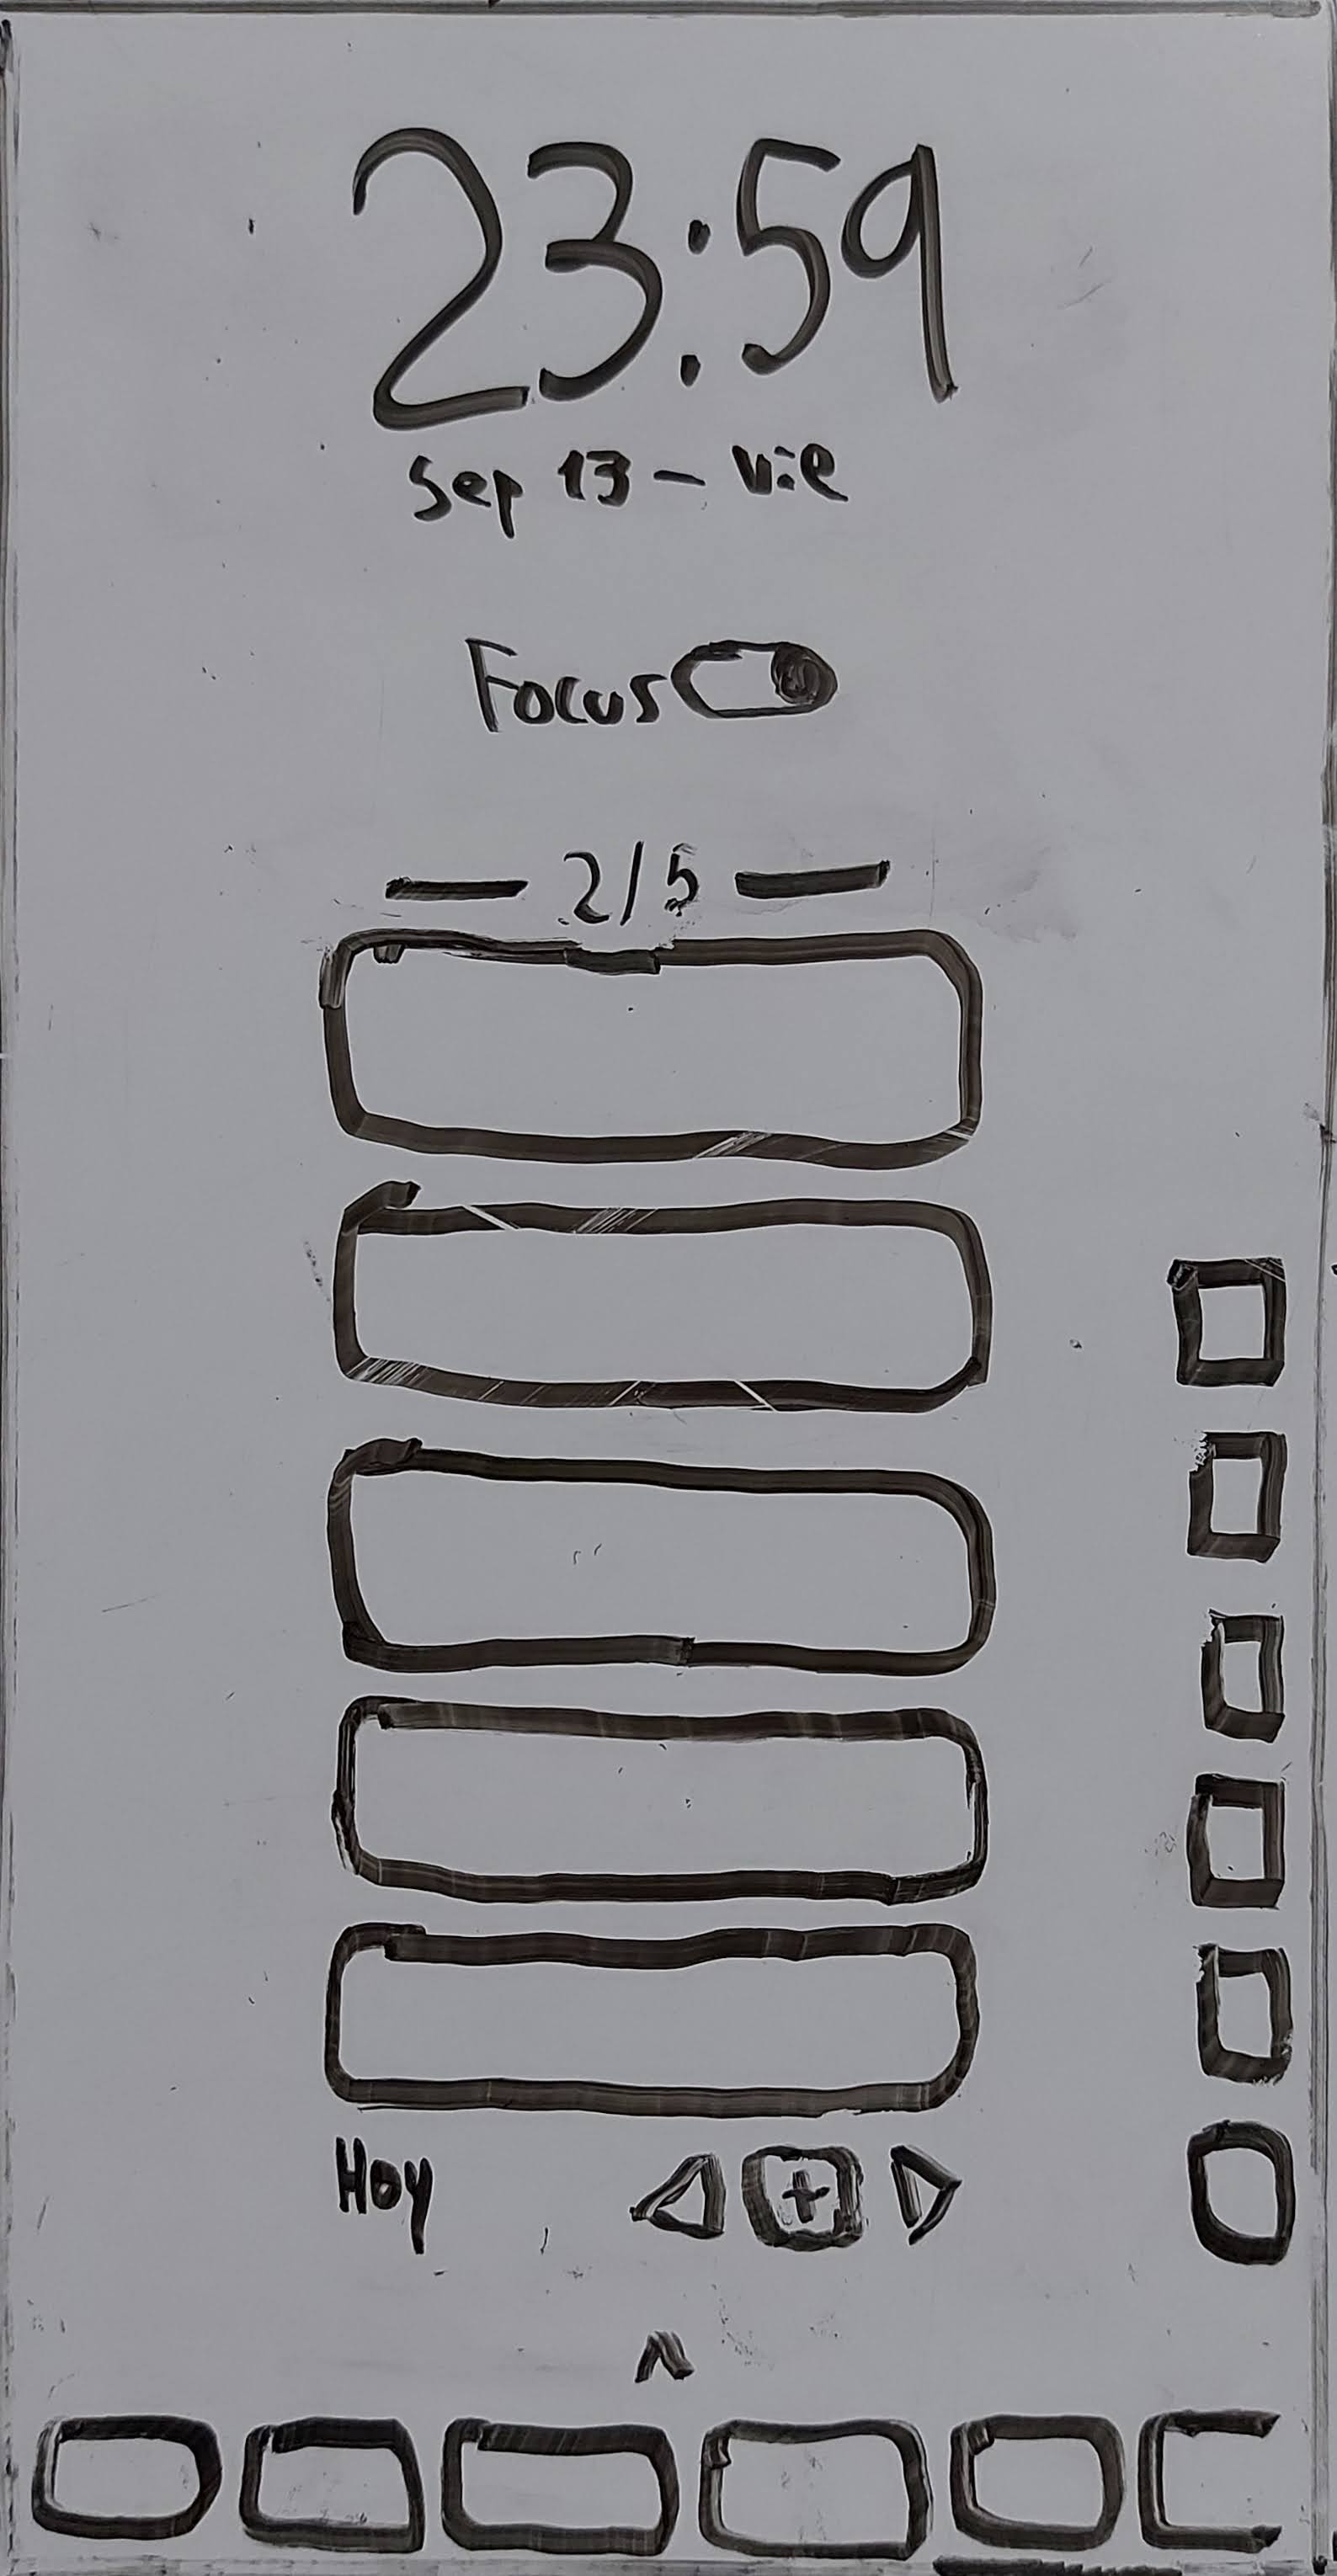 23:59
Sep 13 - vie
Focus
2/5
Hoy
+